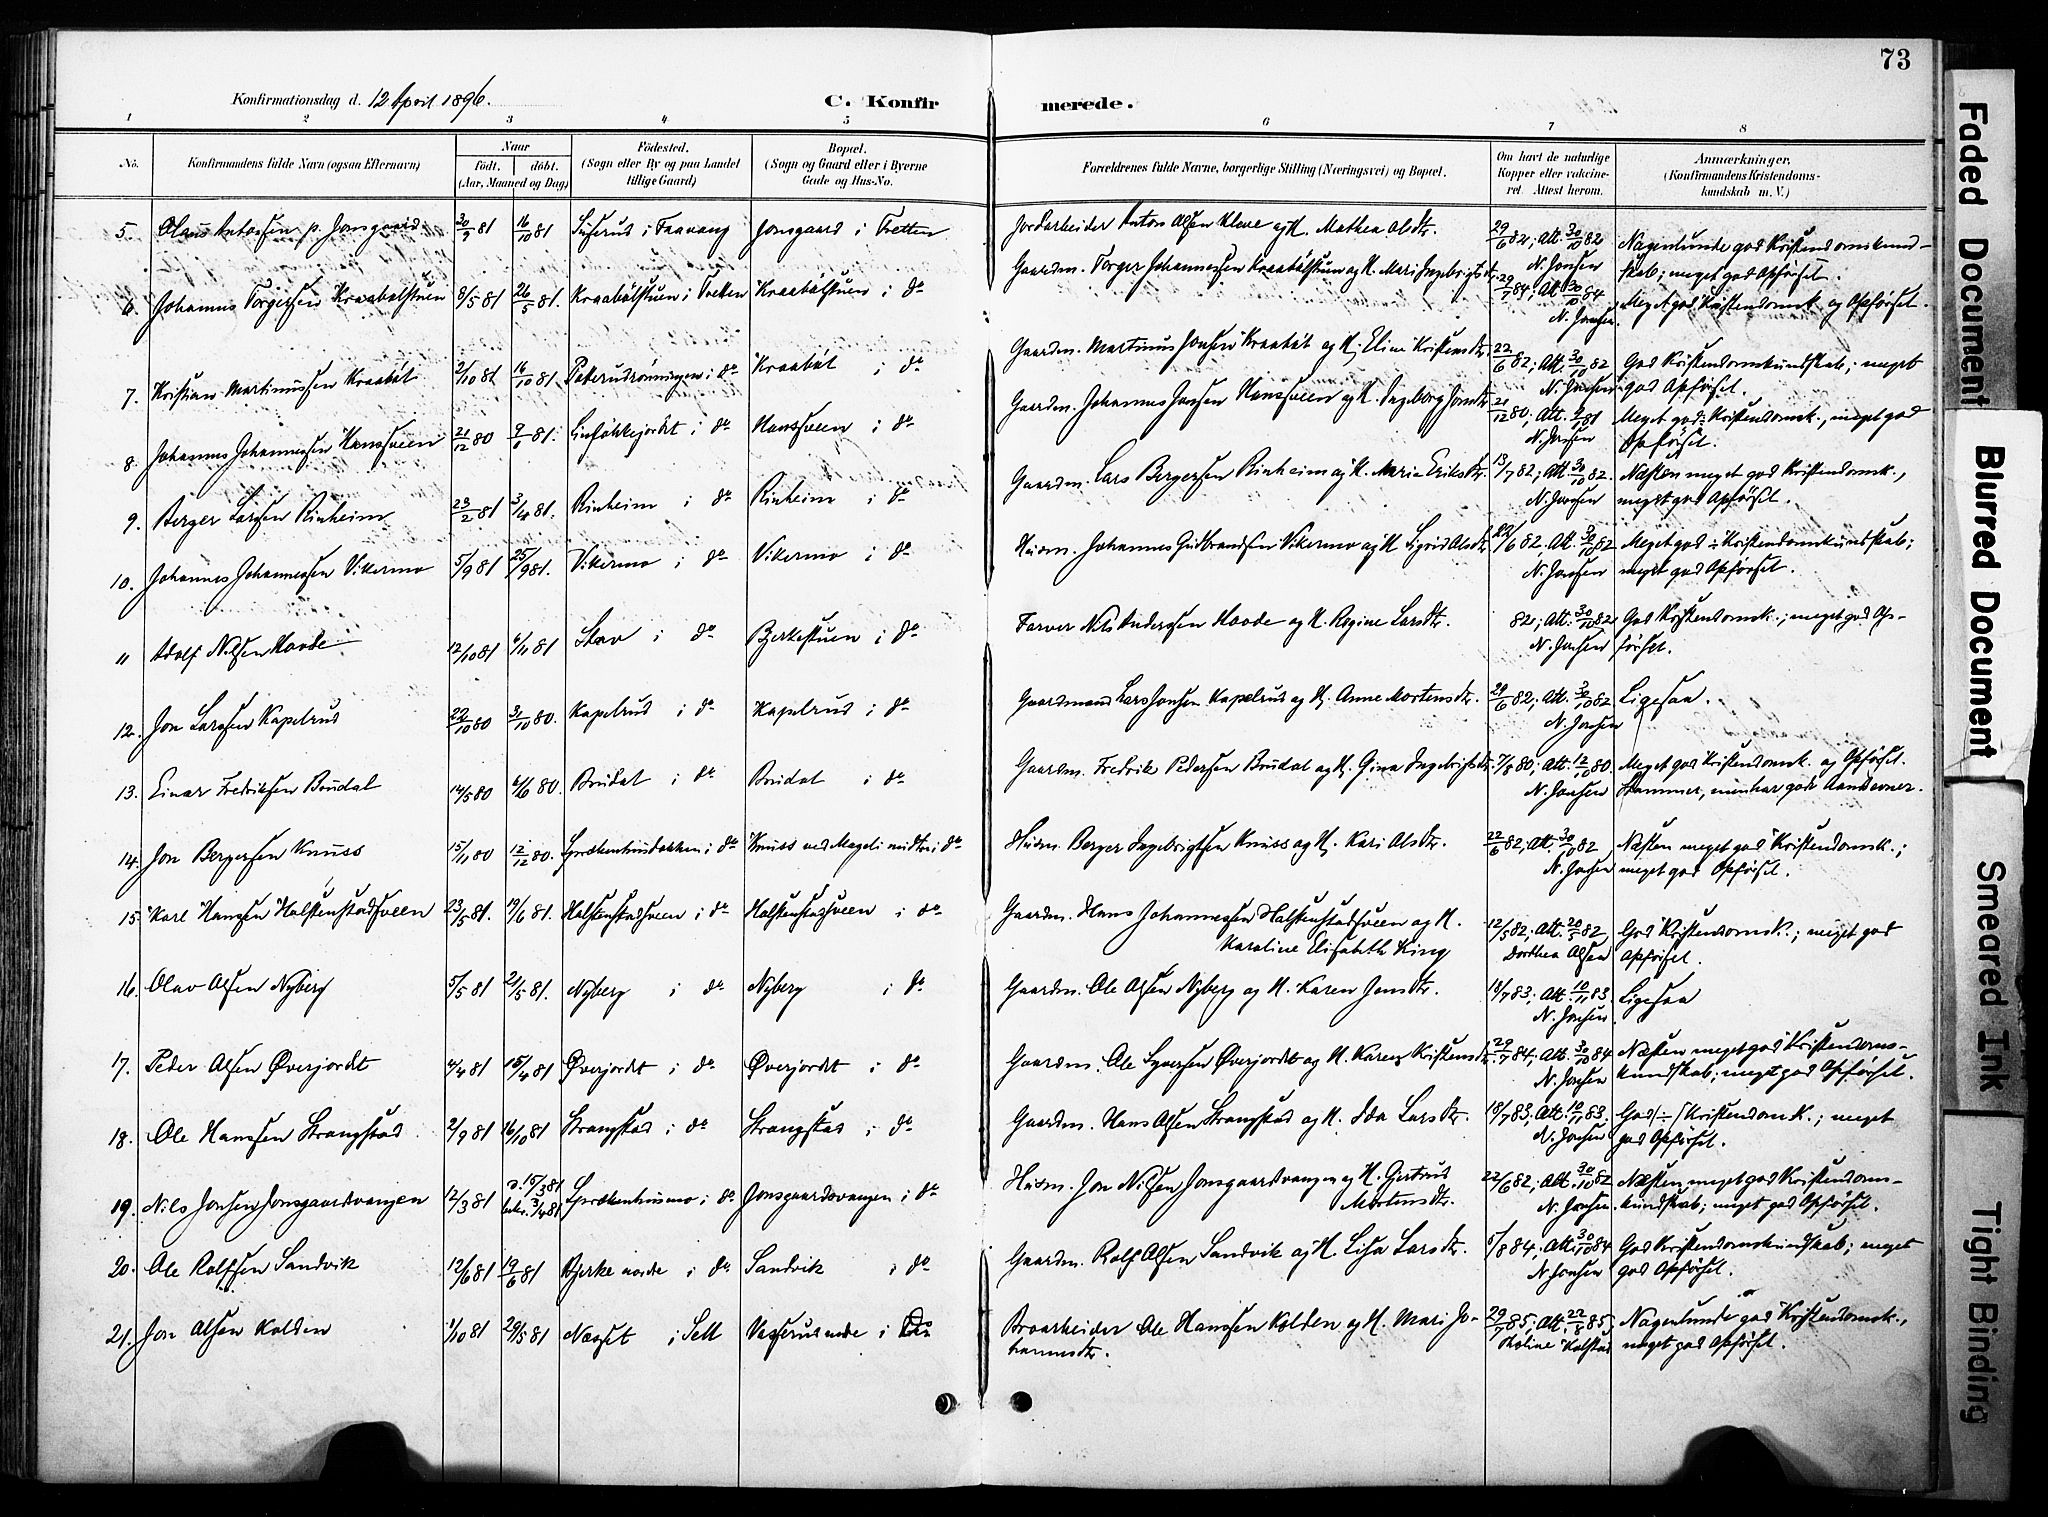 73
Konfirmationsdag d. 12 April 1896.
C. Konfir merede.
1 2 3 4 5 6 7 8
No. Konfirmandens fulde Navn (ogsaa Efternavn) Naar født. døbt. (Aar, Maaned og Dag) Födested. (Sogn eller By og paa Landet tillige Gaard) Bopæl. (Sogn og Gaard eller i Byerne Gade og Hus-No. Forældrenes fulde Navne, borgerlige Stilling (Næringsvei) og Bopæl. Om havt de naturlige Kopper eller vakcineret. Attest herom. Anmærkninger. (Konfirmandens Kristendomskundskab m. V.)
5. Antonsen p. Jonsgaard 30/9 81 16/10 81 i Faavang Jonsgaard i Tretten Jordarbeider Anton Olsen Kleve og H. Mathea Olsdtr. 29/6 82; Att. 30/10 82 N. Jonsen Nogenlunde god Kristendomskundskab; meget god Opførsel.
6. Johannes Torgersen Kraabølstuen 8/5 81 26/5 81. Kraabølstuen i Tretten Kraabølstuen i do Gaardm. Torger Johannessen Kraabølstuen og H. Mari Ingebrigtsdtr. 29/7 84; Att. 30/10 84 N. Jonsen Meget god Kristendomsk. og Opførsel.
7. Kristian Martinussen Kraabøl 2/10 81 16/10 81. Peterudrønningen i do Kraabøl i do Gaardm. Martinus Jonsen Kraabøl og H. Eline Kristensdtr. 22/6 82; Att. 30/10 82 N. Jonsen God Kristendomskundskab; meget god Opførsel.
8. Johannes Johannessen Hansveen 21/12 80 9/1 81. i do Hansveen i do Gaardm. Johannes Jonsen Hansveen og H. Ingeborg Jonsdtr. 21/12 80; Att. 81 N. Jonsen Meget god ÷ Kristendomsk., meget god Opførsel.
9. Berger Larsen Rinheim 23/2 81 3/4 81. Rinheim i do Rinheim i do Gaardm. Lars Bergersen Rinheim og H. Marie Eriksdtr. 13/7 82; Att. 30/10 82. N. Jonsen Næsten meget god Kristendomsk., meget god Opførsel.
10. Johannes Johannessen Vikermo 5/9 81 25/9 81. Vikermo i do Vikermo i do Husm. Johannes Gudbrandsen Vikermo og H. Sigrid Olsdtr. 22/6 82; Att. 30/10 82 N. Jonsen Meget god ÷ Kristendomskundskab; meget god Opførsel.
11 Adolf Nilsen Hovde 12/10 81 6/11 81 Stav i do Bjerkestuen i do Farver Nils Andersen Hovde og H. Regine Larsdtr. 82; Att. 30/10 82 N. Jonsen God Kristendomsk.; meget god Opførsel.
12. Jon Larsen Kapelrud 22/10 80 31/10 80. Kapelrud i do Kapelrud i do Gaardmand Lars Jonsen Kapelrud og H. Anne Mortensdtr. 29/6 82; Att. 30/10 82 N. Jonsen Ligesaa.
13. Einar Fredriksen Brudal 14/5 80 6/6 80. Brudal i do Brudal i do Gaardm. Fredrik Pedersen Brudal og H. Gina Ingebrigtsdtr. 7/8 80; Att. 12/10 80. N. Jonsen Meget god Kristendomsk. og Opførsel. Stammer, men har gode Aandsevner.
14. Jon Bergersen Knuss 15/11 80 12/12 80. i do Knuss ved Mageli nedtr. i do Husm. Berger Ingebrigtsen Knuss og H. Kari Olsdtr. 22/6 82; Att. 30/10 82 N. Jonsen Næsten meget god Kristendomsk.; meget god Opførsel.
15. Karl Hansen Holstenstadsveen 23/5 81. 19/6 81. Holstenstadsveen i do Holstenstadsveen i do Gaardm. Hans Johannessen Holstenstadsveen og H. Karoline Elisabeth King 12/5 82; Att. 20/5 82 Dorthea Olsen God Kristendomsk.; meget god Opførsel.
16. Olav Olsen Nyberg 5/5 81 21/5 81. Nyberg i do Nyberg i do Gaardm. Ole Olsen Nyberg og H. Karen Jonsdtr. 18/7 83; Att. 10/11 83. N. Jonsen Ligesaa
17. Peder Olsen Øverjordet 4/4 81 18/4 81 Øverjordet i do Øverjordet i do Gaardm. Ole Syversen Øverjordet og H. Karen Kristensdtr. 29/7 84; Att. 30/10 84 N. Jonsen Næsten meget god Kristendomskundskab; meget god Opførsel.
18. Ole Hansen Strangstad 2/9 81 16/10 81 Strangstad i do Strangstad i do Gaardm. Hans Olsen Strangstad og H. Ida Larsdtr. 18/7 83; Att. 10/11 83. N. Jonsen God (÷) Kristendomsk.; meget god Opførsel.
19. Nils Jonsen Jonsgaardsvangen 12/3 81 d. 15/3 81 bekr. 3/4 81 Sprækenhusmo i do Jonsgaardsvangen i do Husm. Jon Nilsen Jonsgaardsvangen og H. Gjertrud Mortensdtr. 22/6 82; Att. 30/10 82 N. Jonsen. Næsten meget god Kristendomskundskab; meget god Opførsel.
20. Ole Rolfsen Sandvik 12/6 81 19/6 81 Bjerke nordre i do Sandvik i do Gaardm. Rolf Olsen Sandvik og H. Lisa Larsdtr. 5/8 84; Att. 30/10 84 N. Jonsen God Kristendomskundskab; meget god Opførsel.
21. Jon Olsen Kolden 1/10 81 29/5 81 Næsset i Sell nedre i do Broarbeider Ole Hansen Kolden og H. Mari Johannesdtr. 29/7 85; Att. 22/8 85; Kolstad Nogenlunde god Kristendomsk., meget god Opførsel.
Faded Document
Blurred Document
Smeared Ink
Tight Binding